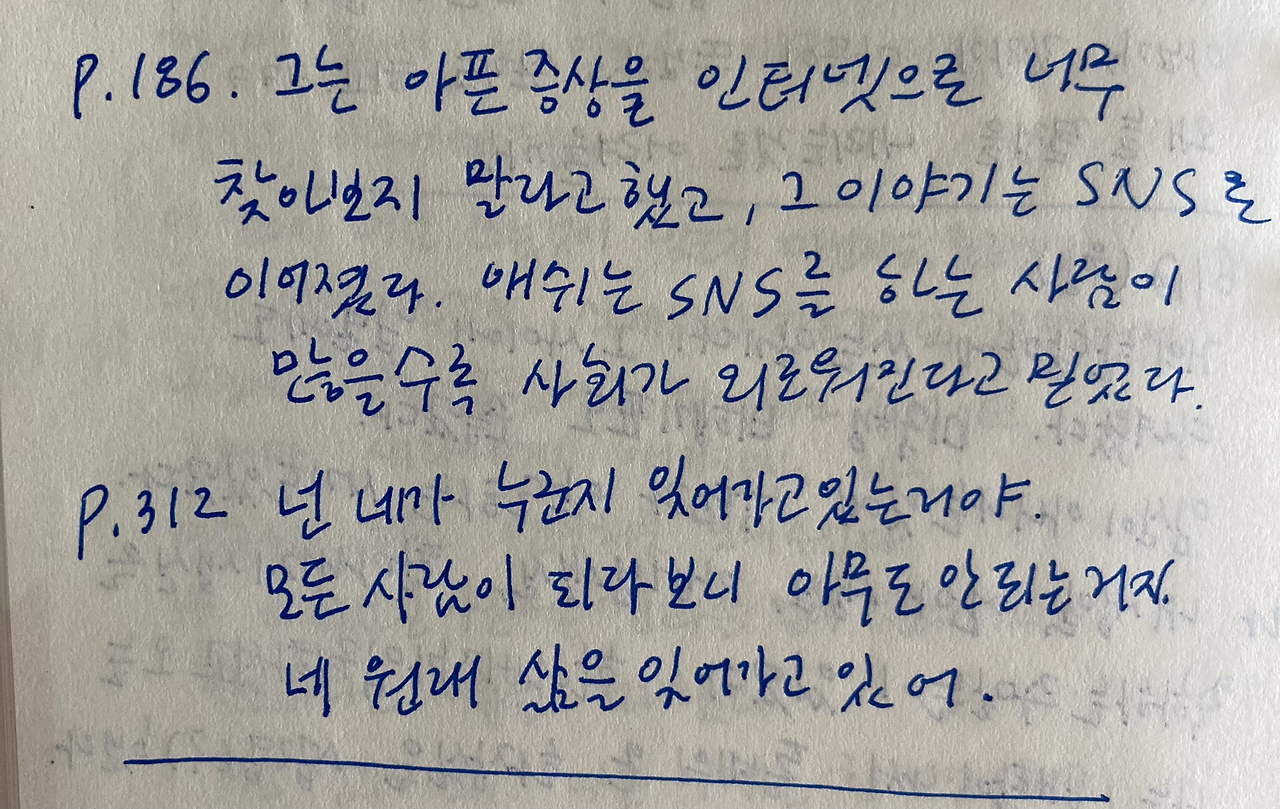 P.186. 그는 아픈 증상을 인터넷으로 너무
찾아보지 말라고 했고, 그 이야기는 SNS로
이어졌다. 애쉬는 SNS를 하는 사람이
많을수록 사회가 외로워진다고 믿었다.
P.312 넌 네가 누군지 잊어가고 있는거야.
모든 사람이 되다보니 아무도 안 되는 거지.
네 원래 삶을 잊어가고 있어.